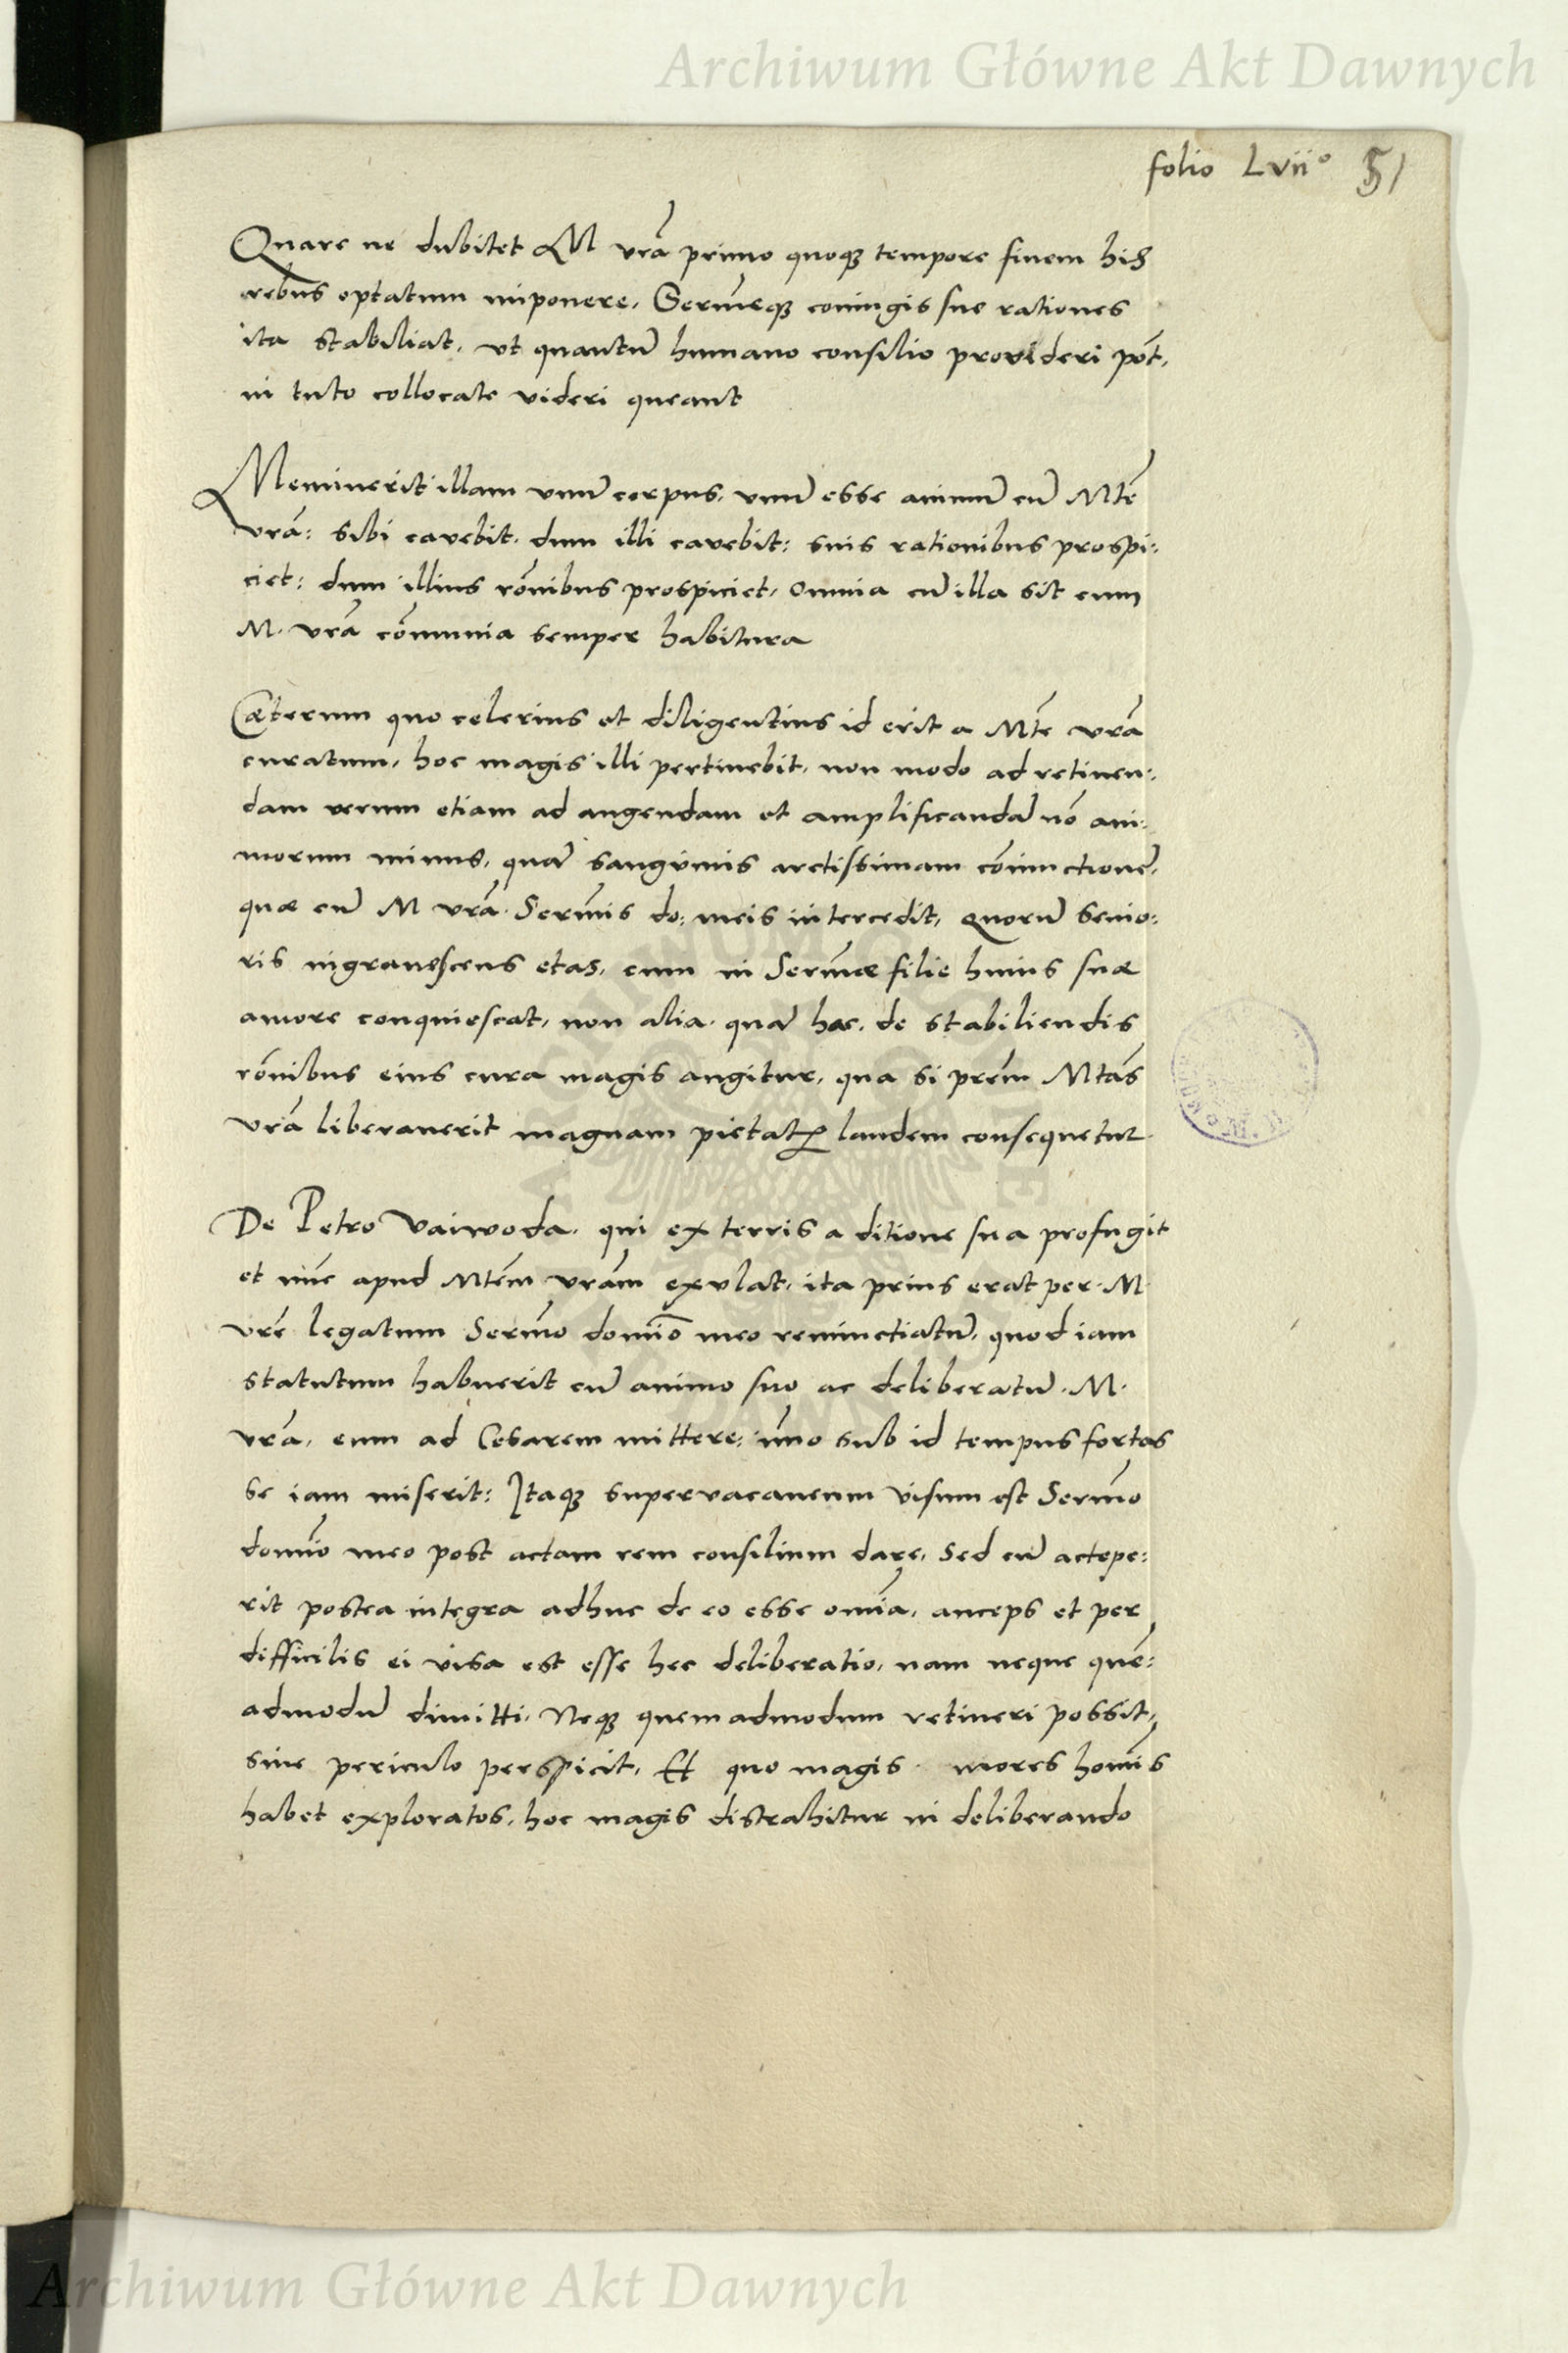 Archiwum Główne Akt Dawnych
folio Lvii° 51
Quare ne dubitet M vrā primo quoqꝫ tempore finem his
rebus optatum imponere, Sermeqꝫ coniugis sue rationes
ita stabiliat, vt quantū humano consilio provideri pōt,
in tuto collocate videri queant
Meminerit illam vnū corpus, vnū esse animū cū Mtē
vrā: sibi cavebit, dum illi cavebit: suis rationibus prospi:
ciet: dum illius rōnibus prospiciet, omnia cū illa sit cum
M. vrā cōmunia semper habitura
Cæterum quo celerius et diligentius id erit a Mtē vrā
curatum, hoc magis illi pertinebit, non modo ad retinen:
dam verum etiam ad augendam et amplificandā nō ani:
morum minus, quā sanguinis arctissimam cōiunctionē,
quæ cū M vrā Sermis do: meis intercedit, quorū senio:
ris ingravescens etas, cum in Sermæ filie huius suæ
amore conquiescat, non alia, quā hac, de stabiliendis
rōnibus eius cura magis angitur, qua si prēm Mtās
vrā liberaverit magnam pietatꝭ laudem consequetur
De Petro Vaivoda, qui ex terris a ditione sua profugit
et nūc apud Mtēm vrām exulat, ita prius erat per M.
vrē legatum Sermo domīo meo renunctiatū, quod iam
statutum habuerit cū animo suo ac deliberatū M.
vrā, eum ad Cesarem mittere, īmo sub id tempus fortas
se iam miserit: Itaqꝫ supervacaneum visum est Sermo
domīo meo post actam rem consilium dare, Sed cū accepe:
rit postea integra adhuc de eo esse omīa, anceps et per
difficilis ei visa est esse hec deliberatio, nam neque quē:
admodū dimitti, Neqꝫ quemadmodum retineri possit,
sine periculo perspicit, Et quo magis mores homīs
habet exploratos, hoc magis distrahitur in deliberando
Archiwum Główne Akt Dawnych